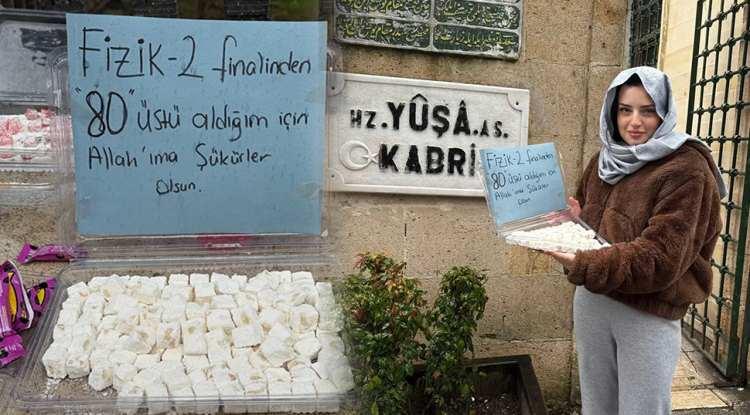 Fizik-2 finalinden
"80" üstü aldığım için
Allah'ıma Şükürler
Olsun.
HZ. YÛŞÂ. AS.
KABRİ
Fizik-2 finalinden
"80" üstü aldığım için
Allah'ıma Şükürler
Olsun